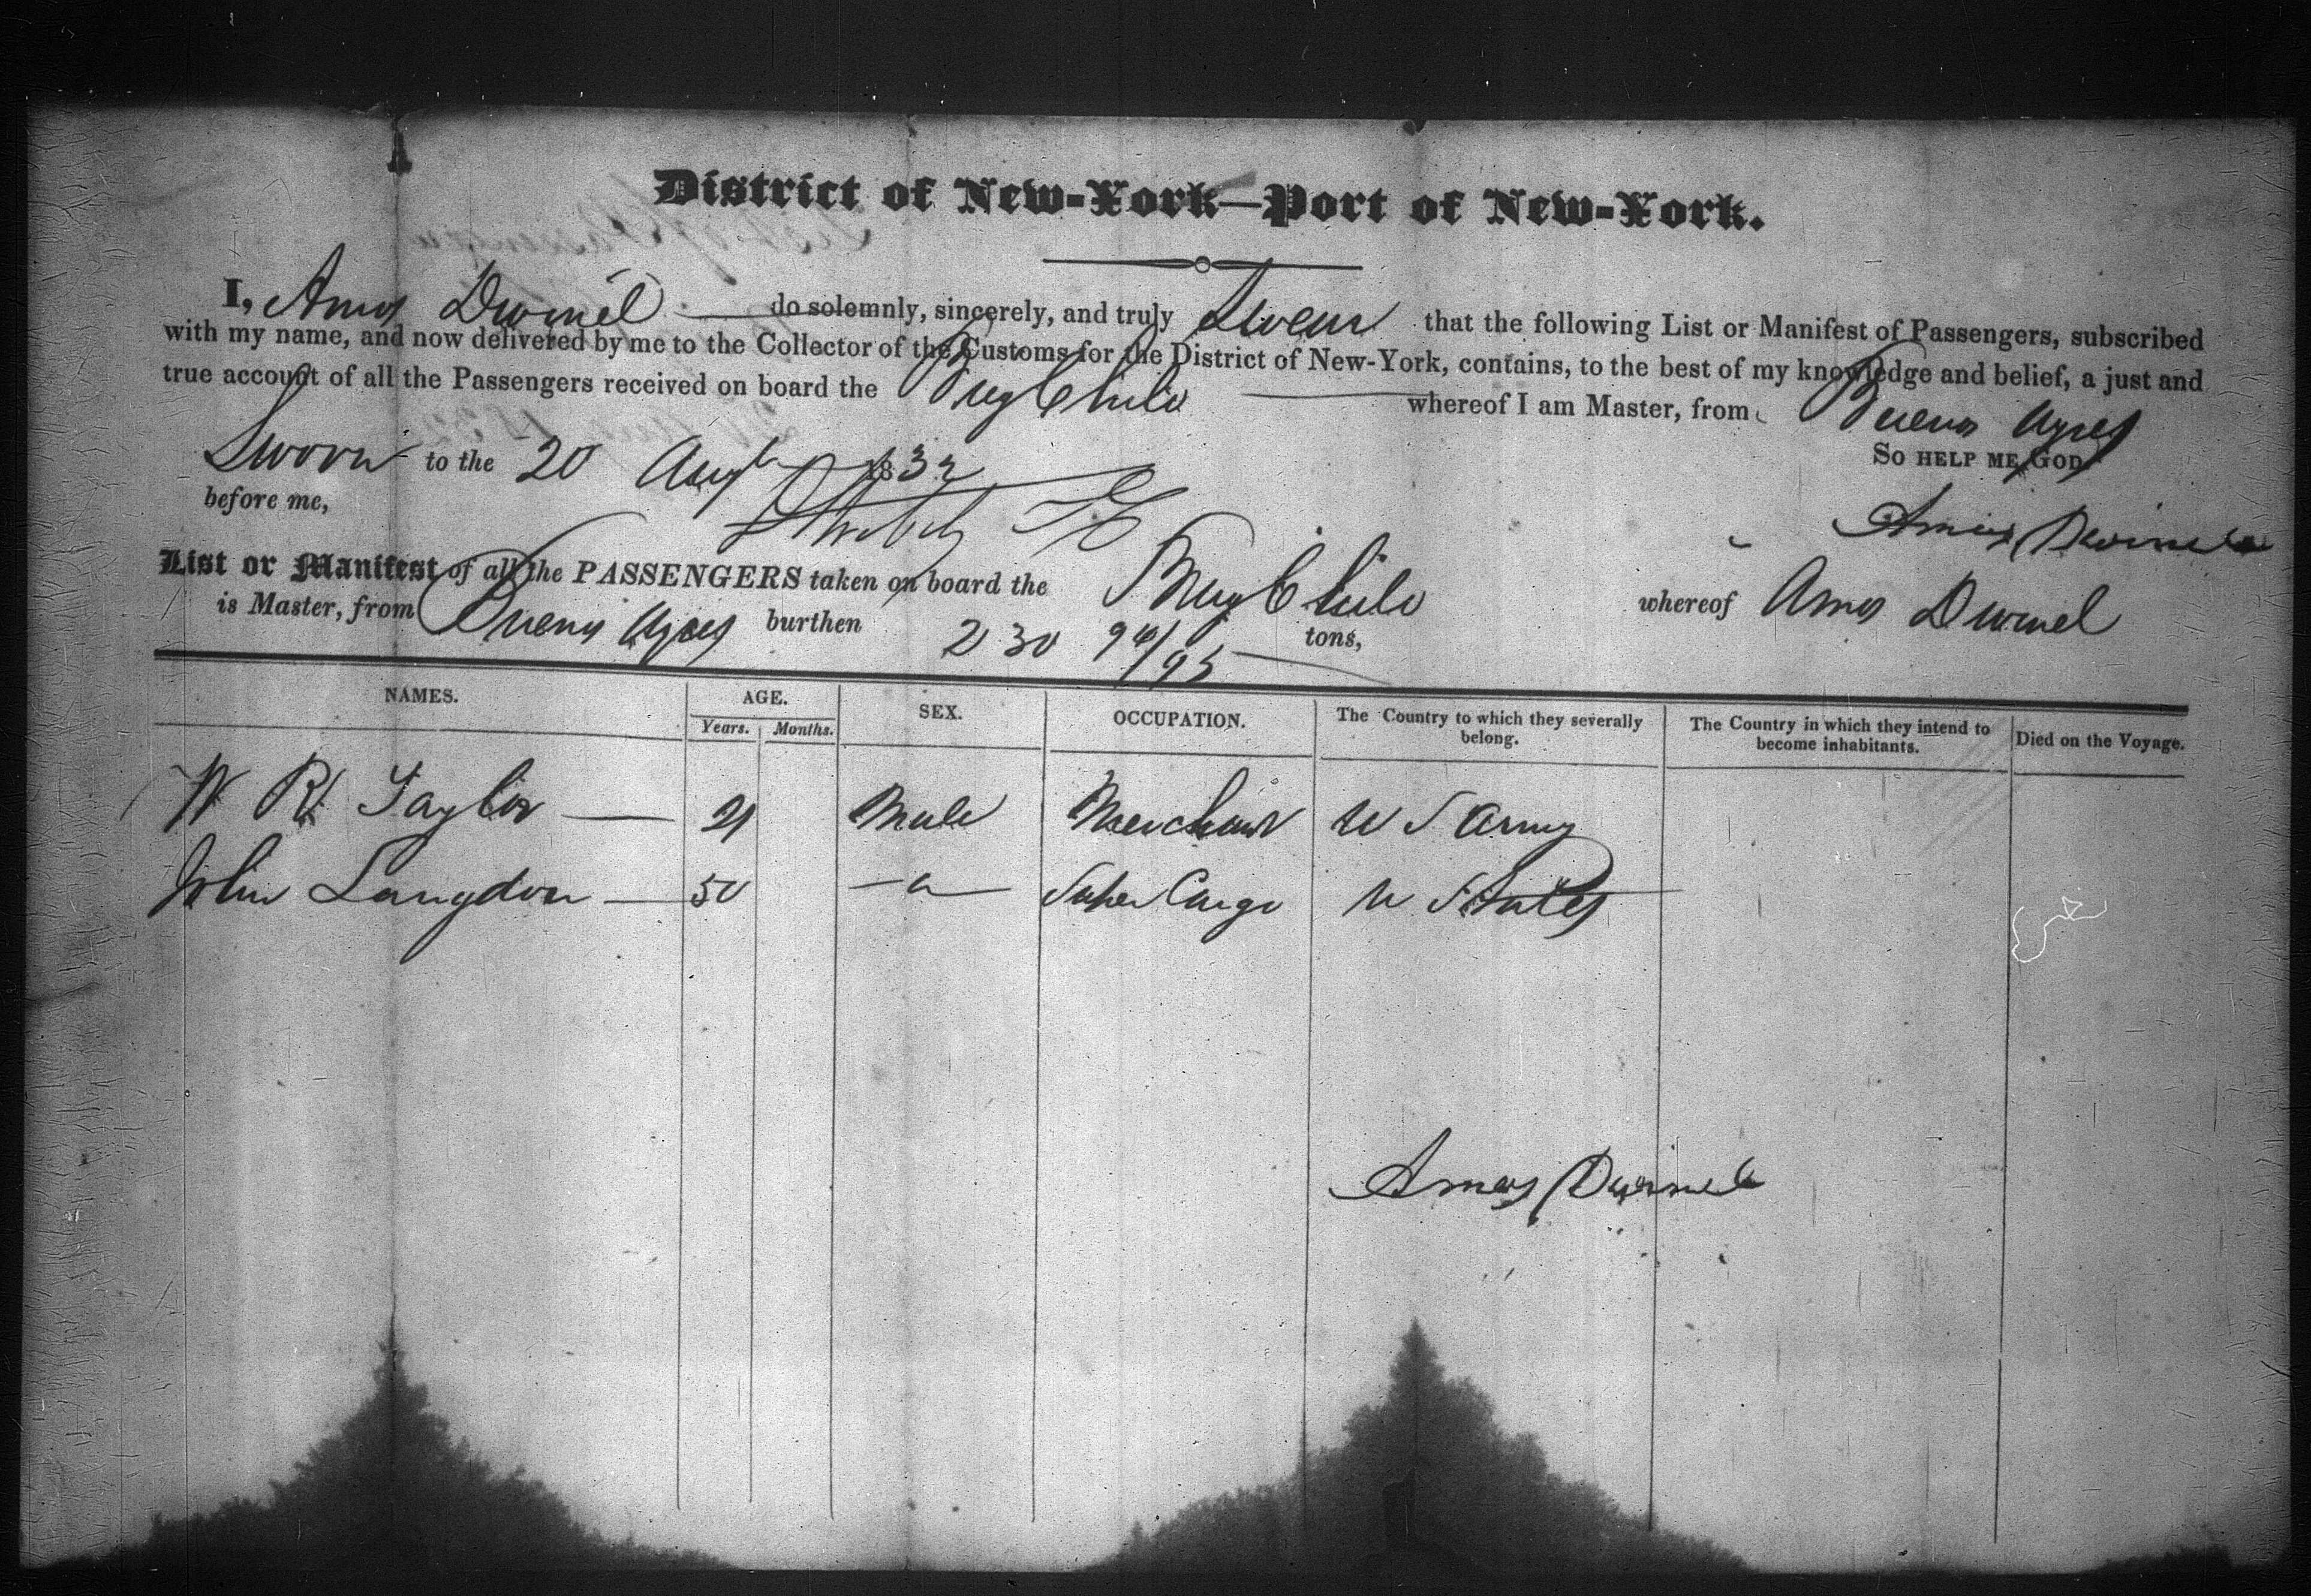 District of New-York—Port of New-York.
I, Amos Dwinel do solemnly, sincerely, and truly Swear that the following List or Manifest of Passengers, subscribed
with my name, and now delivered by me to the Collector of the Customs for the District of New-York, contains, to the best of my knowledge and belief, a just and
true account of all the Passengers received on board the Brig Chilo whereof I am Master, from Buenos Ayres
Sworn to the 20 Augt 1832 So HELP ME GOD
before me,
Amos Dwinel
List or Manifest of all the PASSENGERS taken on board the Brig Chilo whereof Amos Dwinel
is Master, from Buenos Ayres burthen 230 94/95 tons,
NAMES. AGE. SEX. OCCUPATION. The Country to which they severally belong. The Country in which they intend to become inhabitants. Died on the Voyage.
Years. Months.
W R Taylor — 21 Male Merchant U S Army
John Langdon — 50 Super Cargo U States
Amos Dwinel